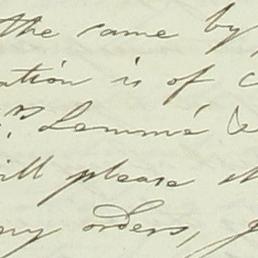 the same by
ation is of
Lemmé &
ill please
my orders,